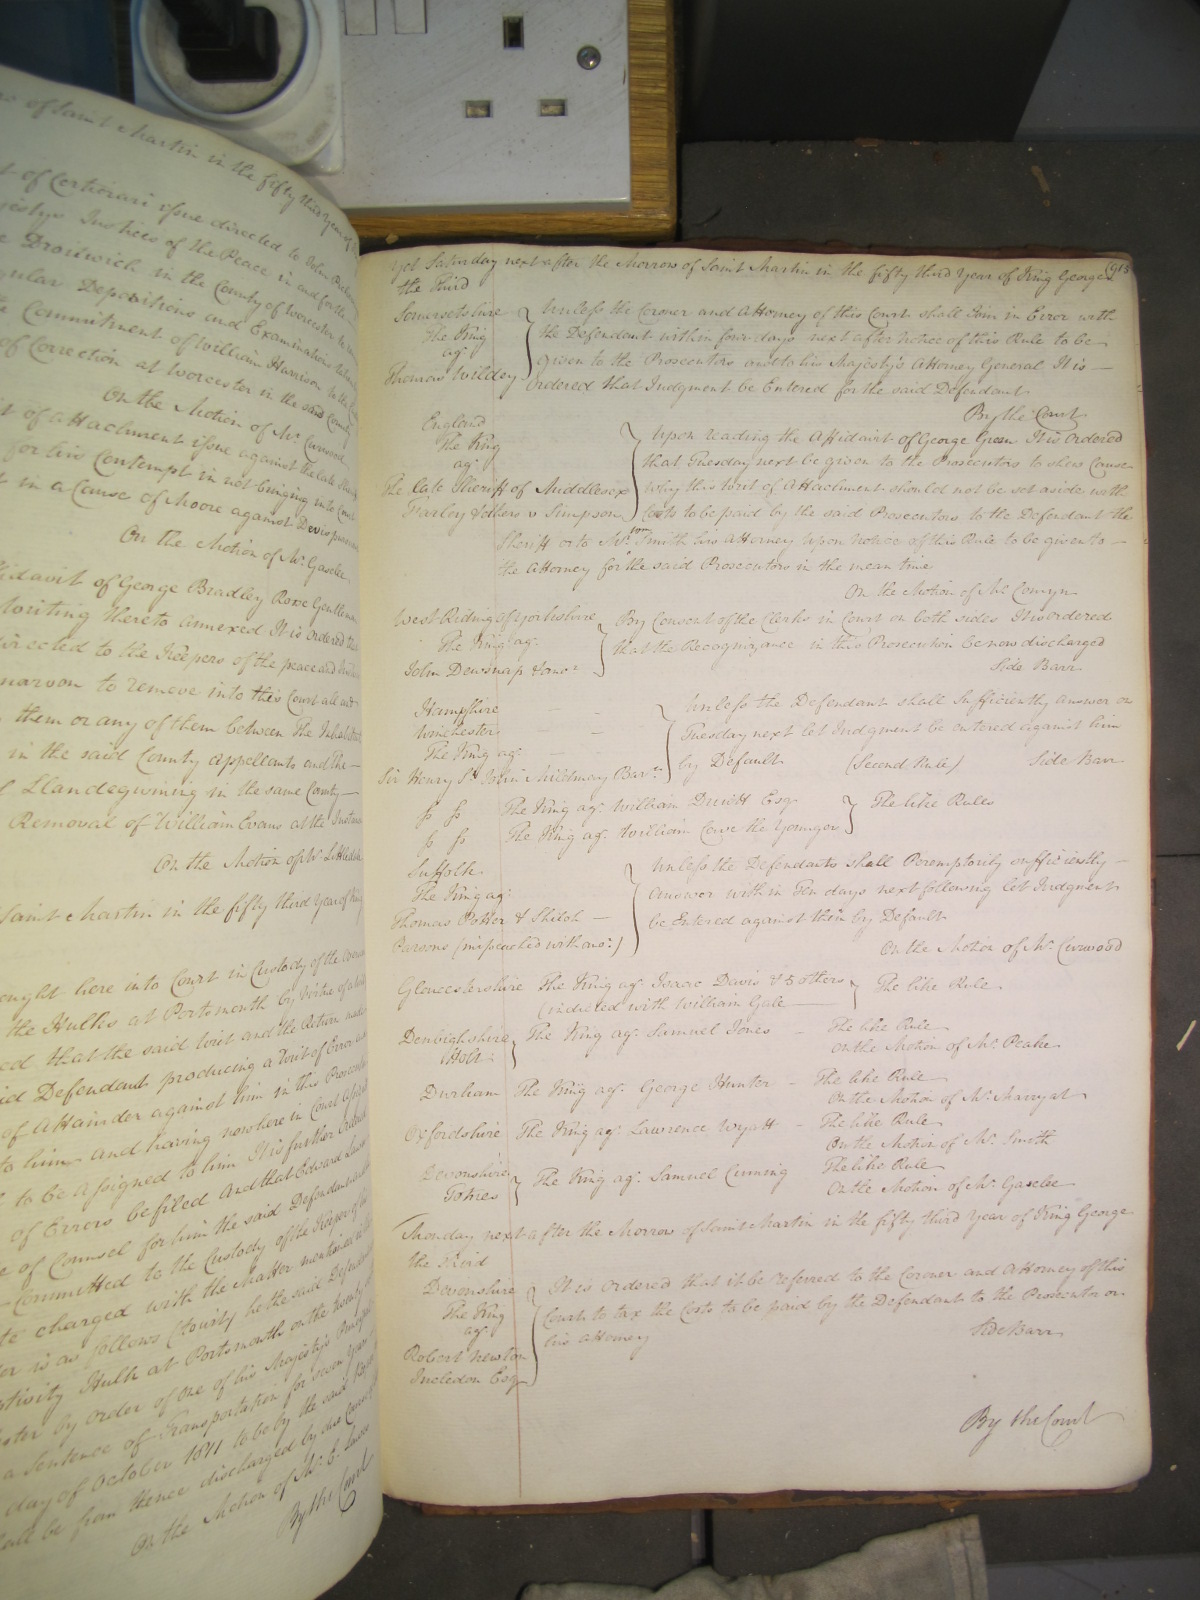 ow of Saint Martin in the fifty third year of
t of Certiorari issue directed to John
jestys Justices of the Peace in and for the
e Droitwich in the County of Worcester to
gular Depositions and Examinations
e Commitment of William Harrison to the
of Correction at Worcester in the said County
On the Motion of Mr. Curwood
t of Attachment issue against the late
for his Contempt in not bringing into Court
t in a Cause of Moore against
On the Motion of Mr. Gaselee
fidavit of George Bradley Roxe Gentleman
Writing thereto annexed It is ordered
directed to the Keepers of the peace and
narvon to remove into this Court all and
them or any of them between The
in the said County appellants and The
Llandegwining in the same County
Removal of William Evans at the
On the Motion of Mr.
Saint Martin in the fifty third year of King
ought here into Court in Custody of the
the Hulks at Portsmouth by Virtue of a
ed that the said Writ and the Return made
id Defendant producing a Writ of Error
of Attainder against him in this Prosecution
to him and having now here in Court
to be assigned to him It is further Ordered
of Errors be filed And that Edward
e of Counsel for him the said Defendant
Committed to the Custody of the Keeper of
te charged with the Matter mentioned
er is as follows (to wit) he the said Defendant
ptivity Hulk at Portsmouth on the
ster by Order of one of his Majesty's
a Sentence of Transportation for seven Years
day of October 1811 to be by the said
hall be from thence discharged by due Course
On the Motion of Mr. E. Lawes
By the Court
Yet Saturday next after the Morrow of Saint Martin in the fifty third Year of King George
the Third
Somersetshire
The King
agt.
Thomas Wildey
Unless the Coroner and Attorney of this Court shall Join in Error with
the Defendant within four days next after notice of this Rule to be
given to the Prosecutors and to his Majesty's Attorney General It is
ordered that Judgment be Entered for the said Defendant
By the Court
England
The King
agt.
The late Sheriff of Middlesex
Farley & others v Simpson
Upon reading the Affidavit of George Green It is Ordered
that Tuesday next be given to the Prosecutors to shew Cause
why this Writ of Attachment should not be set aside with
Costs to be paid by the said Prosecutors to the Defendant the
Sheriff or to Mr. Wm. Smith his Attorney Upon Notice of this Rule to be given to
the Attorney for the said Prosecutors in the mean time
On the Motion of Mr. Comyn
West Riding of Yorkshire
The King agt.
John Dewsnap & anor.
By Consent of the Clerks in Court on both sides It is ordered
that the Recognizance in this Prosecution be now discharged
Side Barr
Hampshire
Winchester
The King agt.
Sir Henry St. John Mildmay Bart.
Unless the Defendant shall Sufficiently answer on
Tuesday next let Judgment be entered against him
by Default (Second Rule) Side Barr
ss ss The King agt. William Duitt Esq.
ss ss The King agt. William Cave the Younger
The like Rules
Suffolk
The King agt.
Thomas Potter & Shiloh
Parsons (impeached with anor.)
Unless the Defendants shall Peremptorily sufficiently
answer within Ten days next following let Judgment
be Entered against them by Default
On the Motion of Mr. Curwood
Gloucestershire The King agt. Isaac Davis & 5 others
(indicted with William Gale
The like Rule
Denbighshire
Holt
The King agt. Samuel Jones The like Rule
On the Motion of Mr. Peake
Durham The King agt. George Hunter The like Rule
On the Motion of Mr. Marryat
Oxfordshire The King agt. Lawrence Wyatt The like Rule
On the Motion of Mr. Smith
Devonshire
Totnes
The King agt. Samuel Cuming The like Rule
On the Motion of Mr. Gaselee
Monday next after the Morrow of Saint Martin in the fifty third Year of King George
the Third
Devonshire
The King
agt.
Robert Newton
Incledon Esq
It is Ordered that it be referred to the Coroner and Attorney of this
Court to tax the Costs to be paid by the Defendant to the Prosecutor or
his Attorney
Side Barr
By the Court